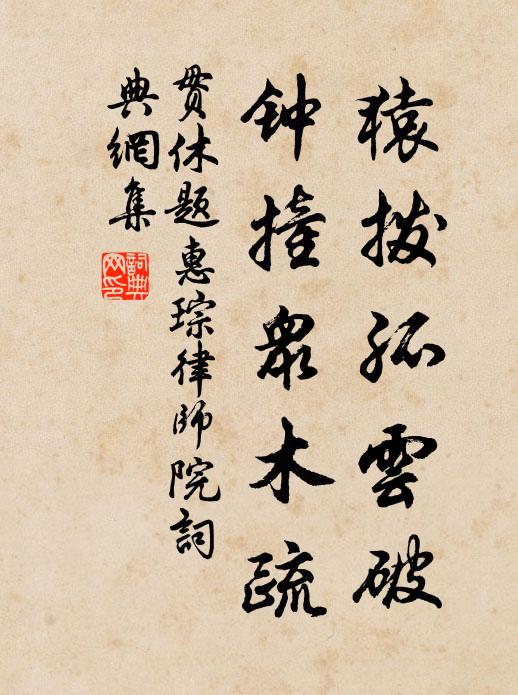 猿拨孤雲破
钟撞衆木疏
贯休题惠琮律师院詞
典網集
詞典網印